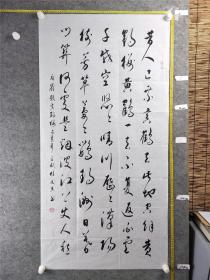 昔人已乘黄鹤去此地空餘黄
鹤楼黄鹤一去不复返白云
千载空悠悠晴川历历漢陽
樹芳草萋萋鹦鹉洲日暮
乡关何处是烟波江上使人愁